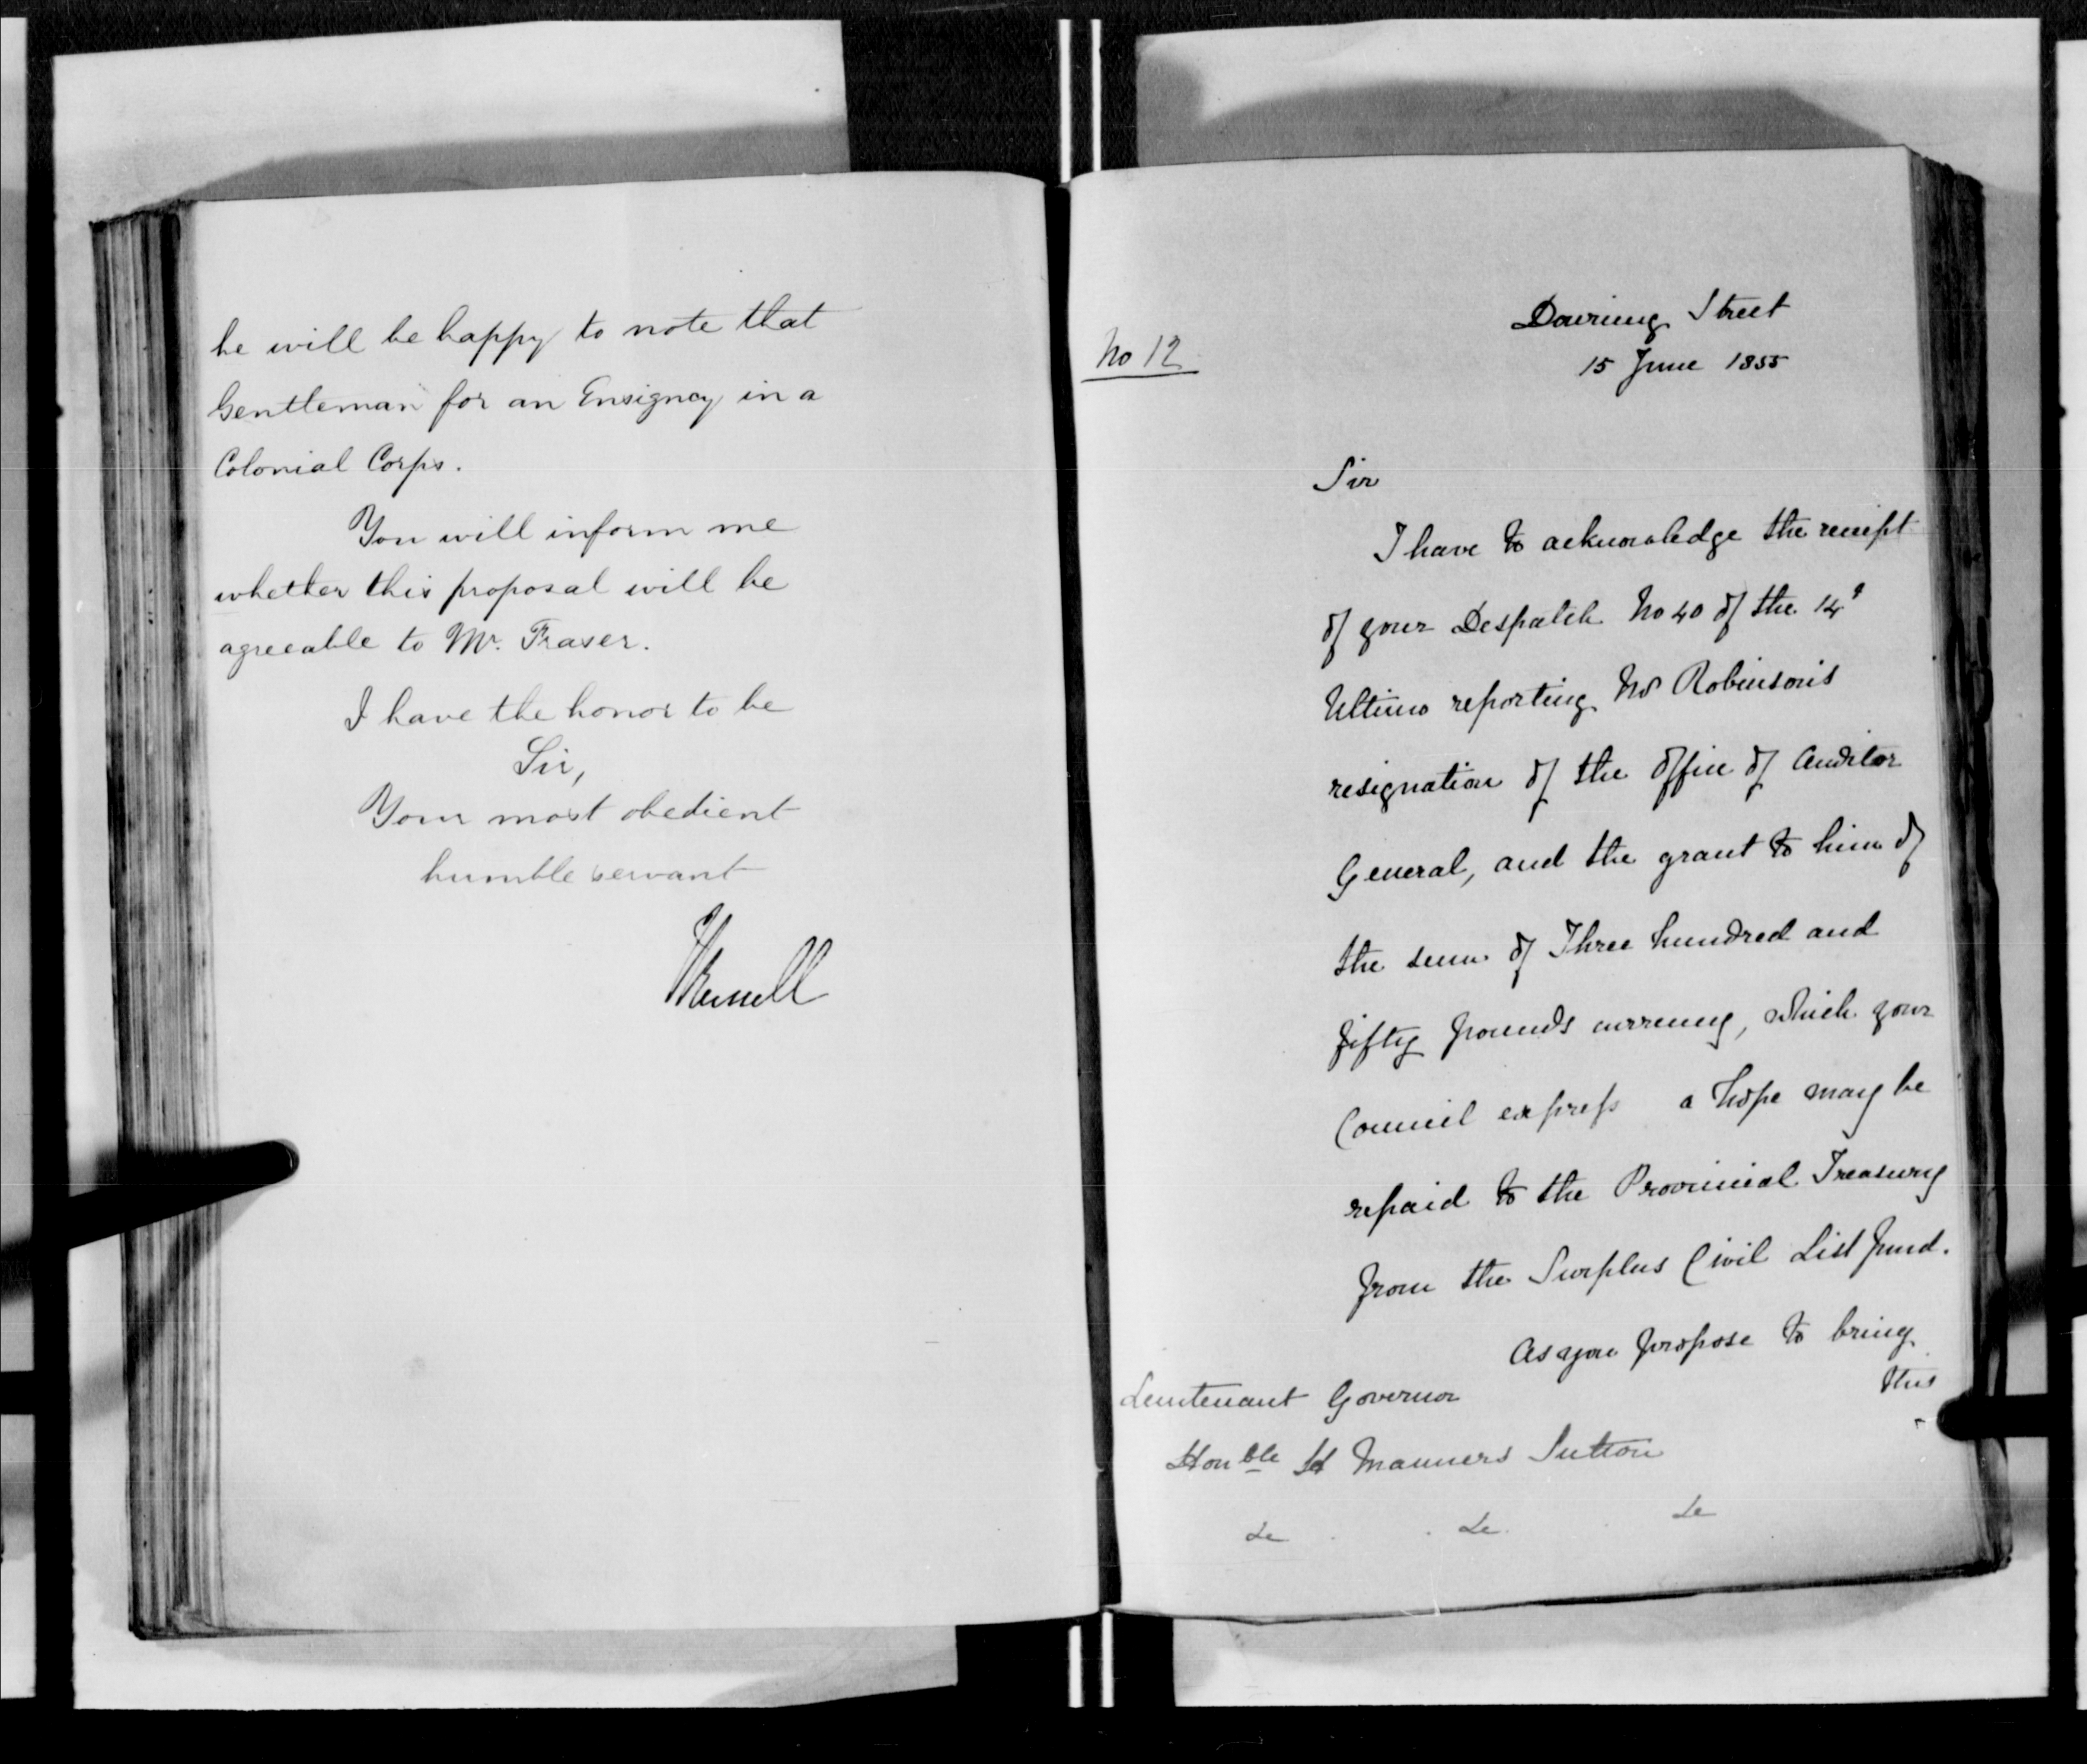 he will be happy to note that
Gentleman for an Ensigncy in a
Colonial Corps.
You will inform me
whether this proposal will be
agreeable to Mr. Fraser.
I have the honor to be
Sir,
Your most obedient
humble servant
JRussell
No 12
Downing Street
15 June 1855
Sir
I have to acknowledge the receipt
of your Despatch No 40 of the 14th
Ultimo reporting Mr Robinson's
resignation of the Office of Auditor
General, and the grant to him of
the sum of Three hundred and
fifty pounds currency, which your
Council express a hope may be
repaid to the Provincial Treasury
from the Surplus Civil List fund.
As you propose to bring
this
Lieutenant Governor
Honble H Manners Sutton
&c &c &c